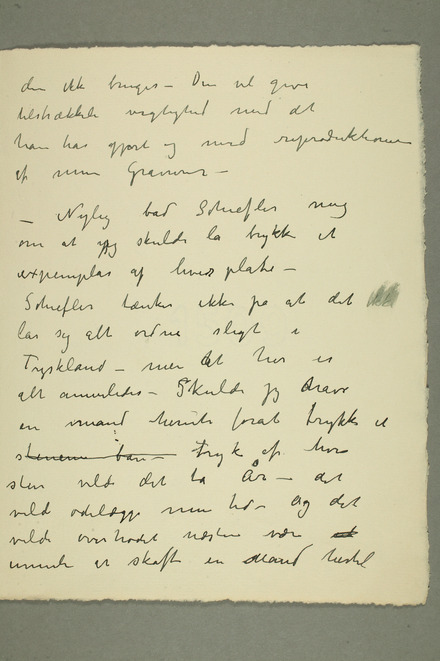 den ikk bruges – Den vil give
tilstrækkeli vigtighed med det
han har gjort og med reproduktioner
af mine Gravurer –
– Nylig bad Schiefler mig
om at jeg skulde la trykke et
exsemplar af hver plate –
Schiefler tænker ikke på at det
lar sig alt ordne sligt i
Tyskland – men at her er
alt annerledes – Skulde jeg have
en mand herute forat trykke et
tryk af hver
sten vilde det ta År – det
vilde ødelægge min tid og det
vilde overhodet næsten være
umuli at skaffe en Mand hertil